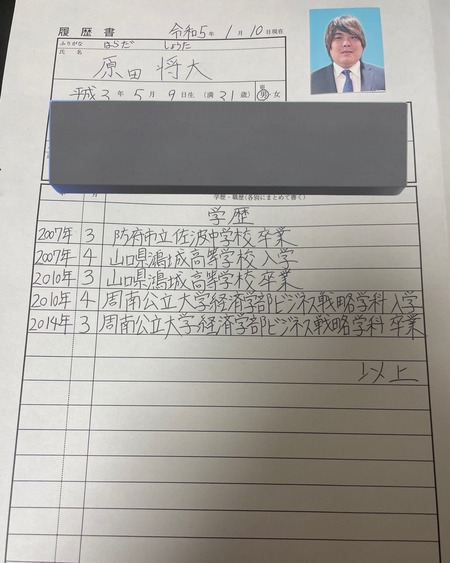 履歴書 令和5年 1月 10日現在
ふりがな はらだ しょうた
氏名 原田 将大
平成3年 5月 9日生 (満 31歳) 男 女
月 学歴・職歴(各別にまとめて書く)
学歴
2007年 3 防府市立佐波中学校 卒業
2007年 4 山口県鴻城高等学校 入学
2010年 3 山口県鴻城高等学校 卒業
2010年 4 周南公立大学経済学部ビジネス戦略学科 入学
2014年 3 周南公立大学経済学部ビジネス戦略学科 卒業
以上